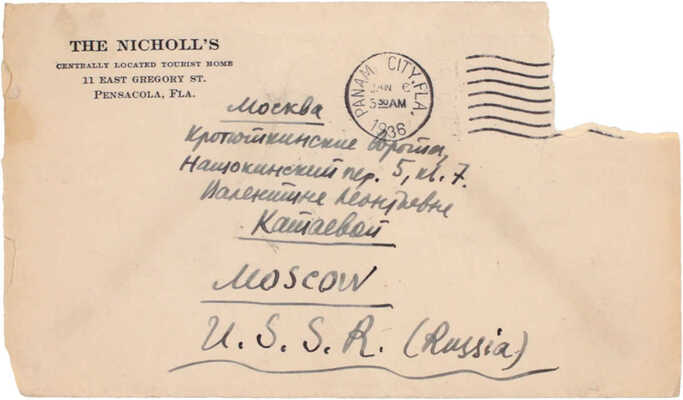 THE NICHOLL'S
CENTRALLY LOCATED TOURIST HOME
11 EAST GREGORY ST.
PENSACOLA, FLA.
PANAM CITY, FLA.
JAN 6
5 30 AM
1936
Москва
Кропоткинские ворота,
Нащокинский пер. 5, кв. 7.
Валентине Леонтьевне
Катаевой
MOSCOW
U.S.S.R. (Russia)